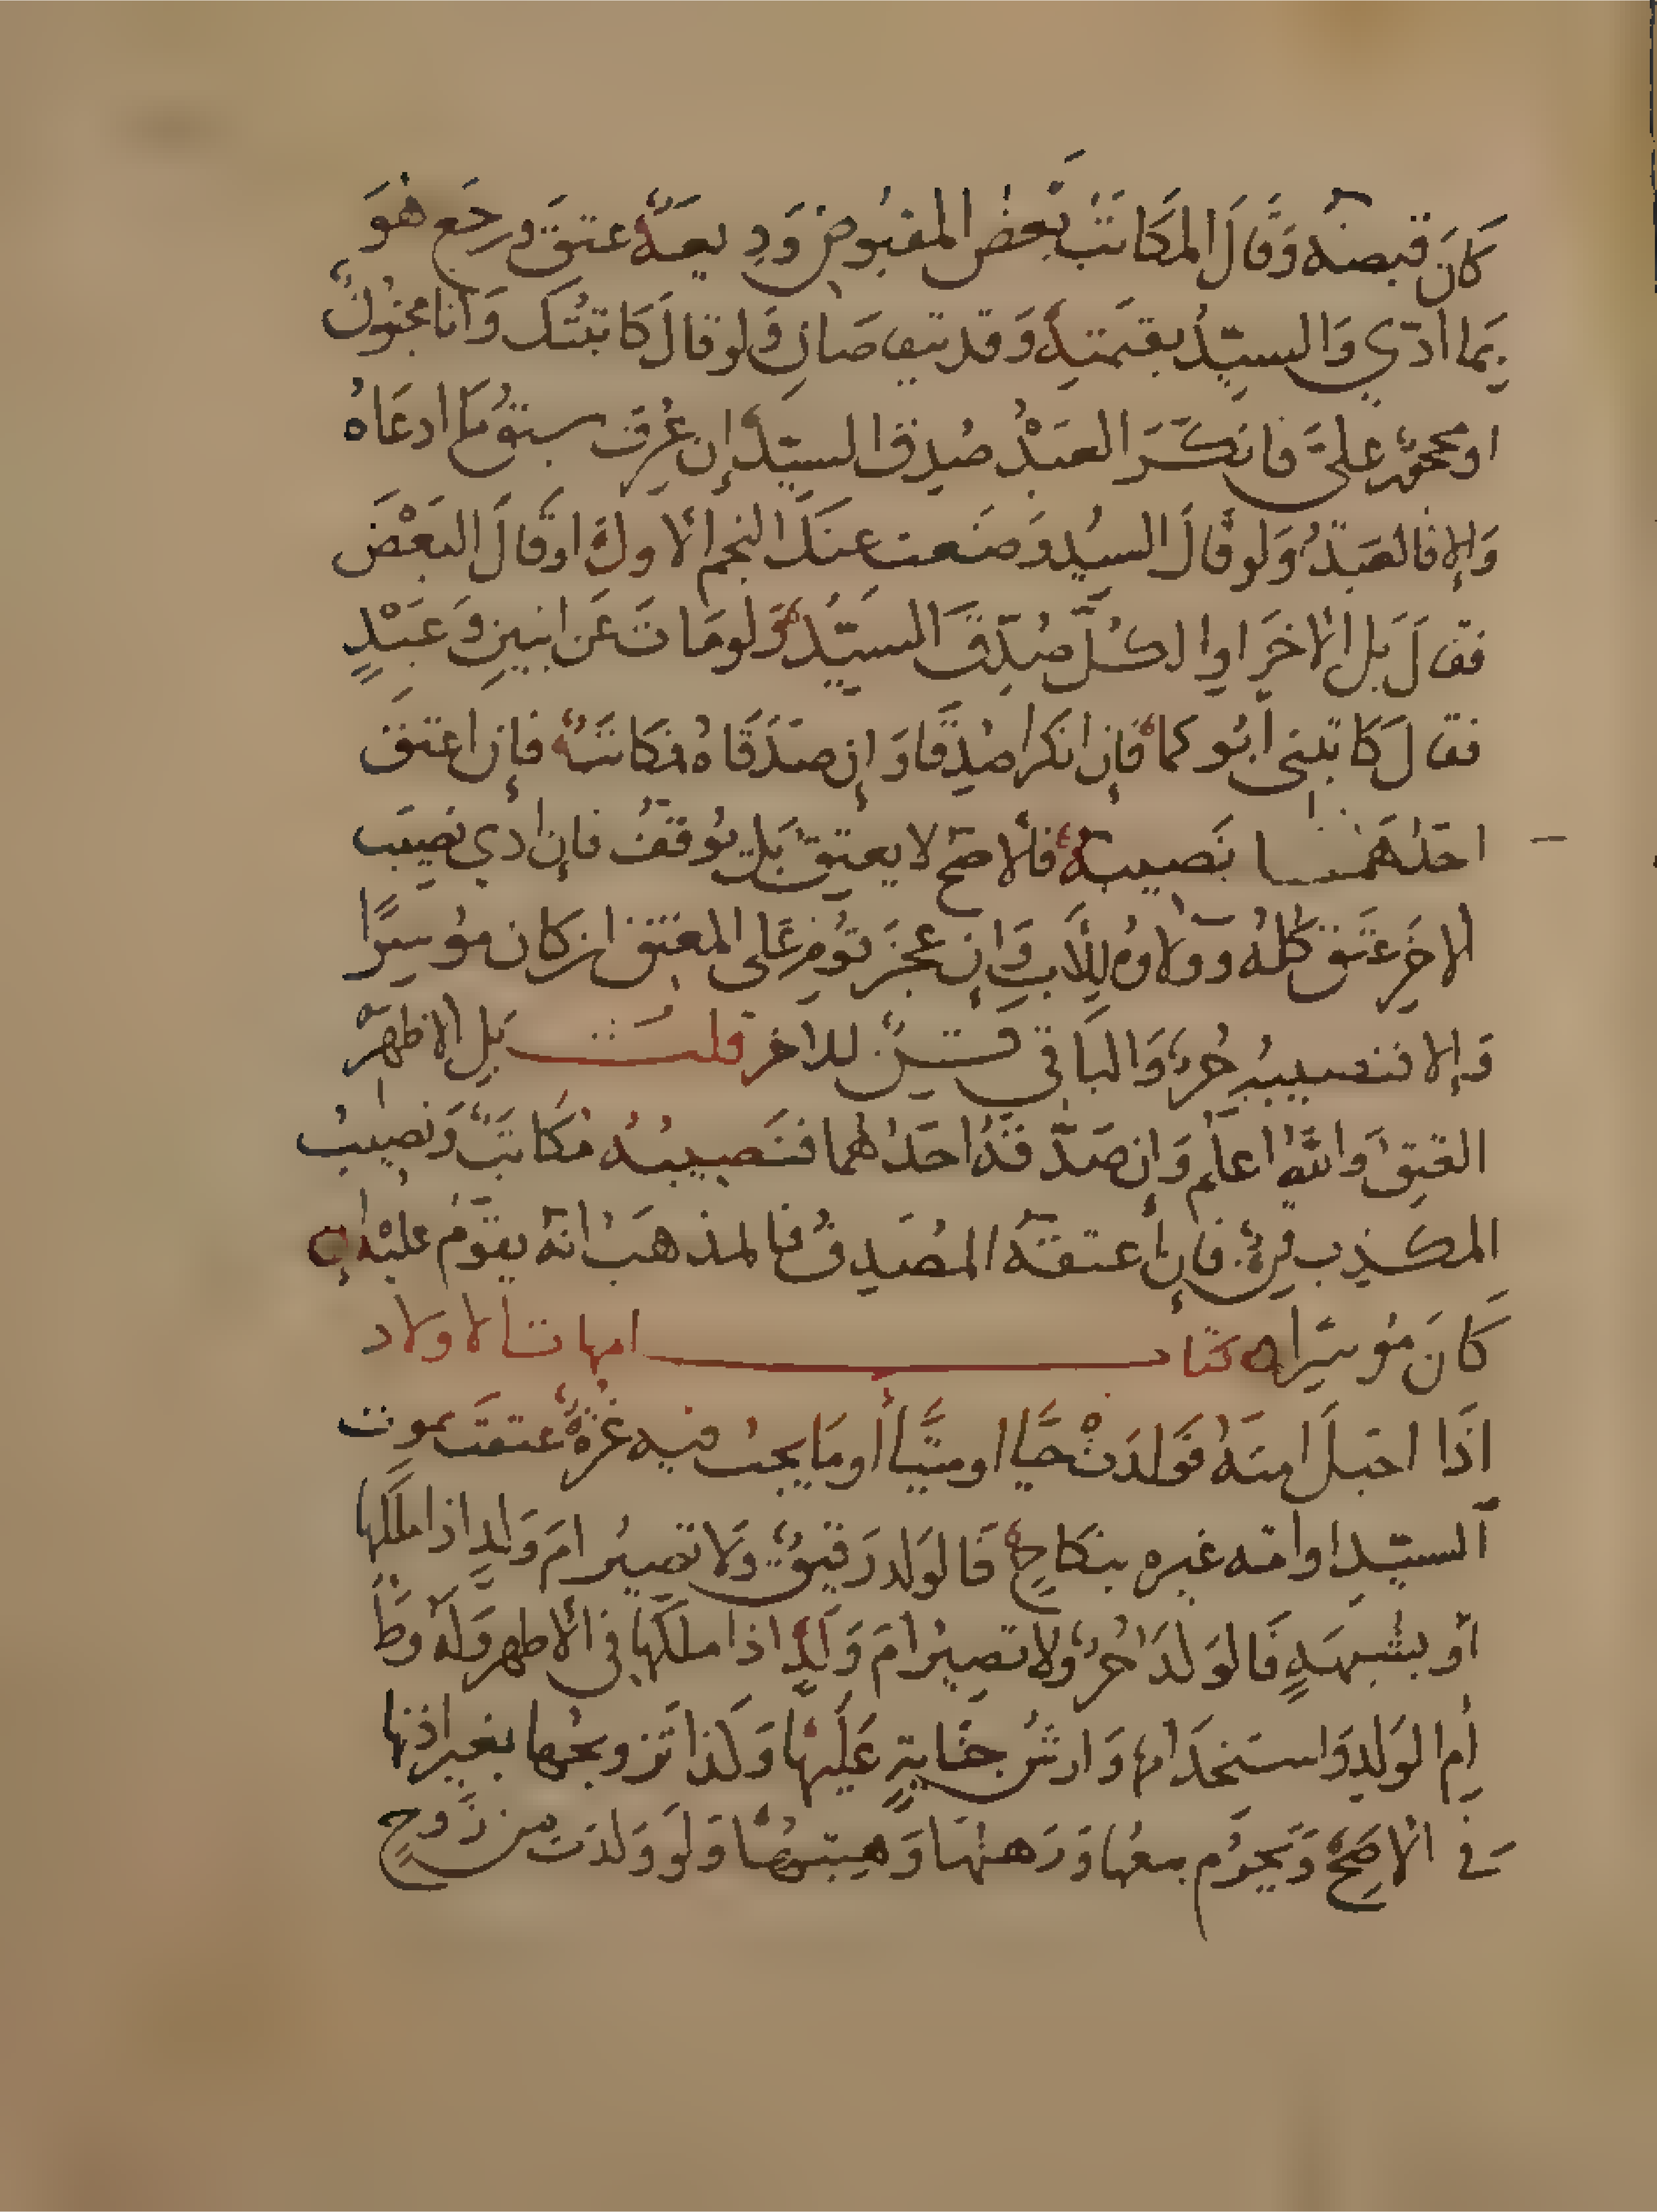 كَانَ قبضه وَقَالَ المكَاتَبُ بَعضُ المقبُوضِ وَدِيعَةٌ عتقَ ورجَع هُوَ
بِمَا ادّي وَالسيّدُ بقيمتِهِ وَقد يتقاصّان وَلو قالَ كَاتبتُك وَانا مجنُونٌ
او محجورٌ عليَّ فانكَرَ العَبدُ صُدِق السيّدُ إن عُرِف سبقُ مَا ادعَاهُ
وَإلا فالعَبدُ وَلو قالَ السيّد وَضَعت عنكَ النجم الاول اوقَالَ البَعْضَ
فقالَ بَل الاخرَ اوالكُلَّ صُدِّقَ السيّدُ وَلو مَاتَ عَن ابنينِ وَعَبْدٍ
فقالَ كَاتبني ابُوكما فَإن انكرا صُدِقا وَإن صَدَقَاهُ فمكَاتَبٌ فإن اعتقَ
احَدُهمَا نَصيبهُ فالاصَح لا يعتِق بَل يُوقفُ فإن ادي نصِيبَ
الاخَرِ عَتق كلُّه وولاوه للِابِ وَان عجزَ قُوم عَلى المعتِق ان كان مُوسِرًا
وَإلا فنصيبه حُرٌ وَالباقي قنٌّ للاخر قلتُ بَل الاظهرُ
العتقُ وَاللهُ اعلَم وَإن صَدَّقهُ احَدُهُما فنَصيبُهُ مُكَاتَبٌ وَنصيبُ
المكذِب قِنٌ فإن أعتقهُ المُصَدِقُ فالمذهَبُ انهُ يقوّمُ عليْهِ إن
كَانَ مُوسِرا ه كتاب امهات الاولاد
اذَا احبَلَ امتهُ فَولدَتْ حيًّا او ميّتًا أو مَا يجبُ فيه غرَّةٌ عتقَت بموت
السيّدِ او امَة غيره بنكَاحٍ فَالولد رَقيقٌ وَلا تصِيرُ امَ وَلدٍ اذا ملكَها
أو بشُبهَةٍ فَالوَلدُ حرٌ ولا تصِيرُ امَ وَلَدٍ اذا ملكَها في الاظهر وَلهُ وَطُ
أم الوَلدِ وَاستخدَامُها وَارشُ جنايةٍ عَليْهَا وَكذا تَزويجُها بغير اذنها
في الاصَحِّ وَيحرُم بيعُها وَرَهنُها وَهِبتُهَا وَلَو وَلدَت مِن زَوجٍ